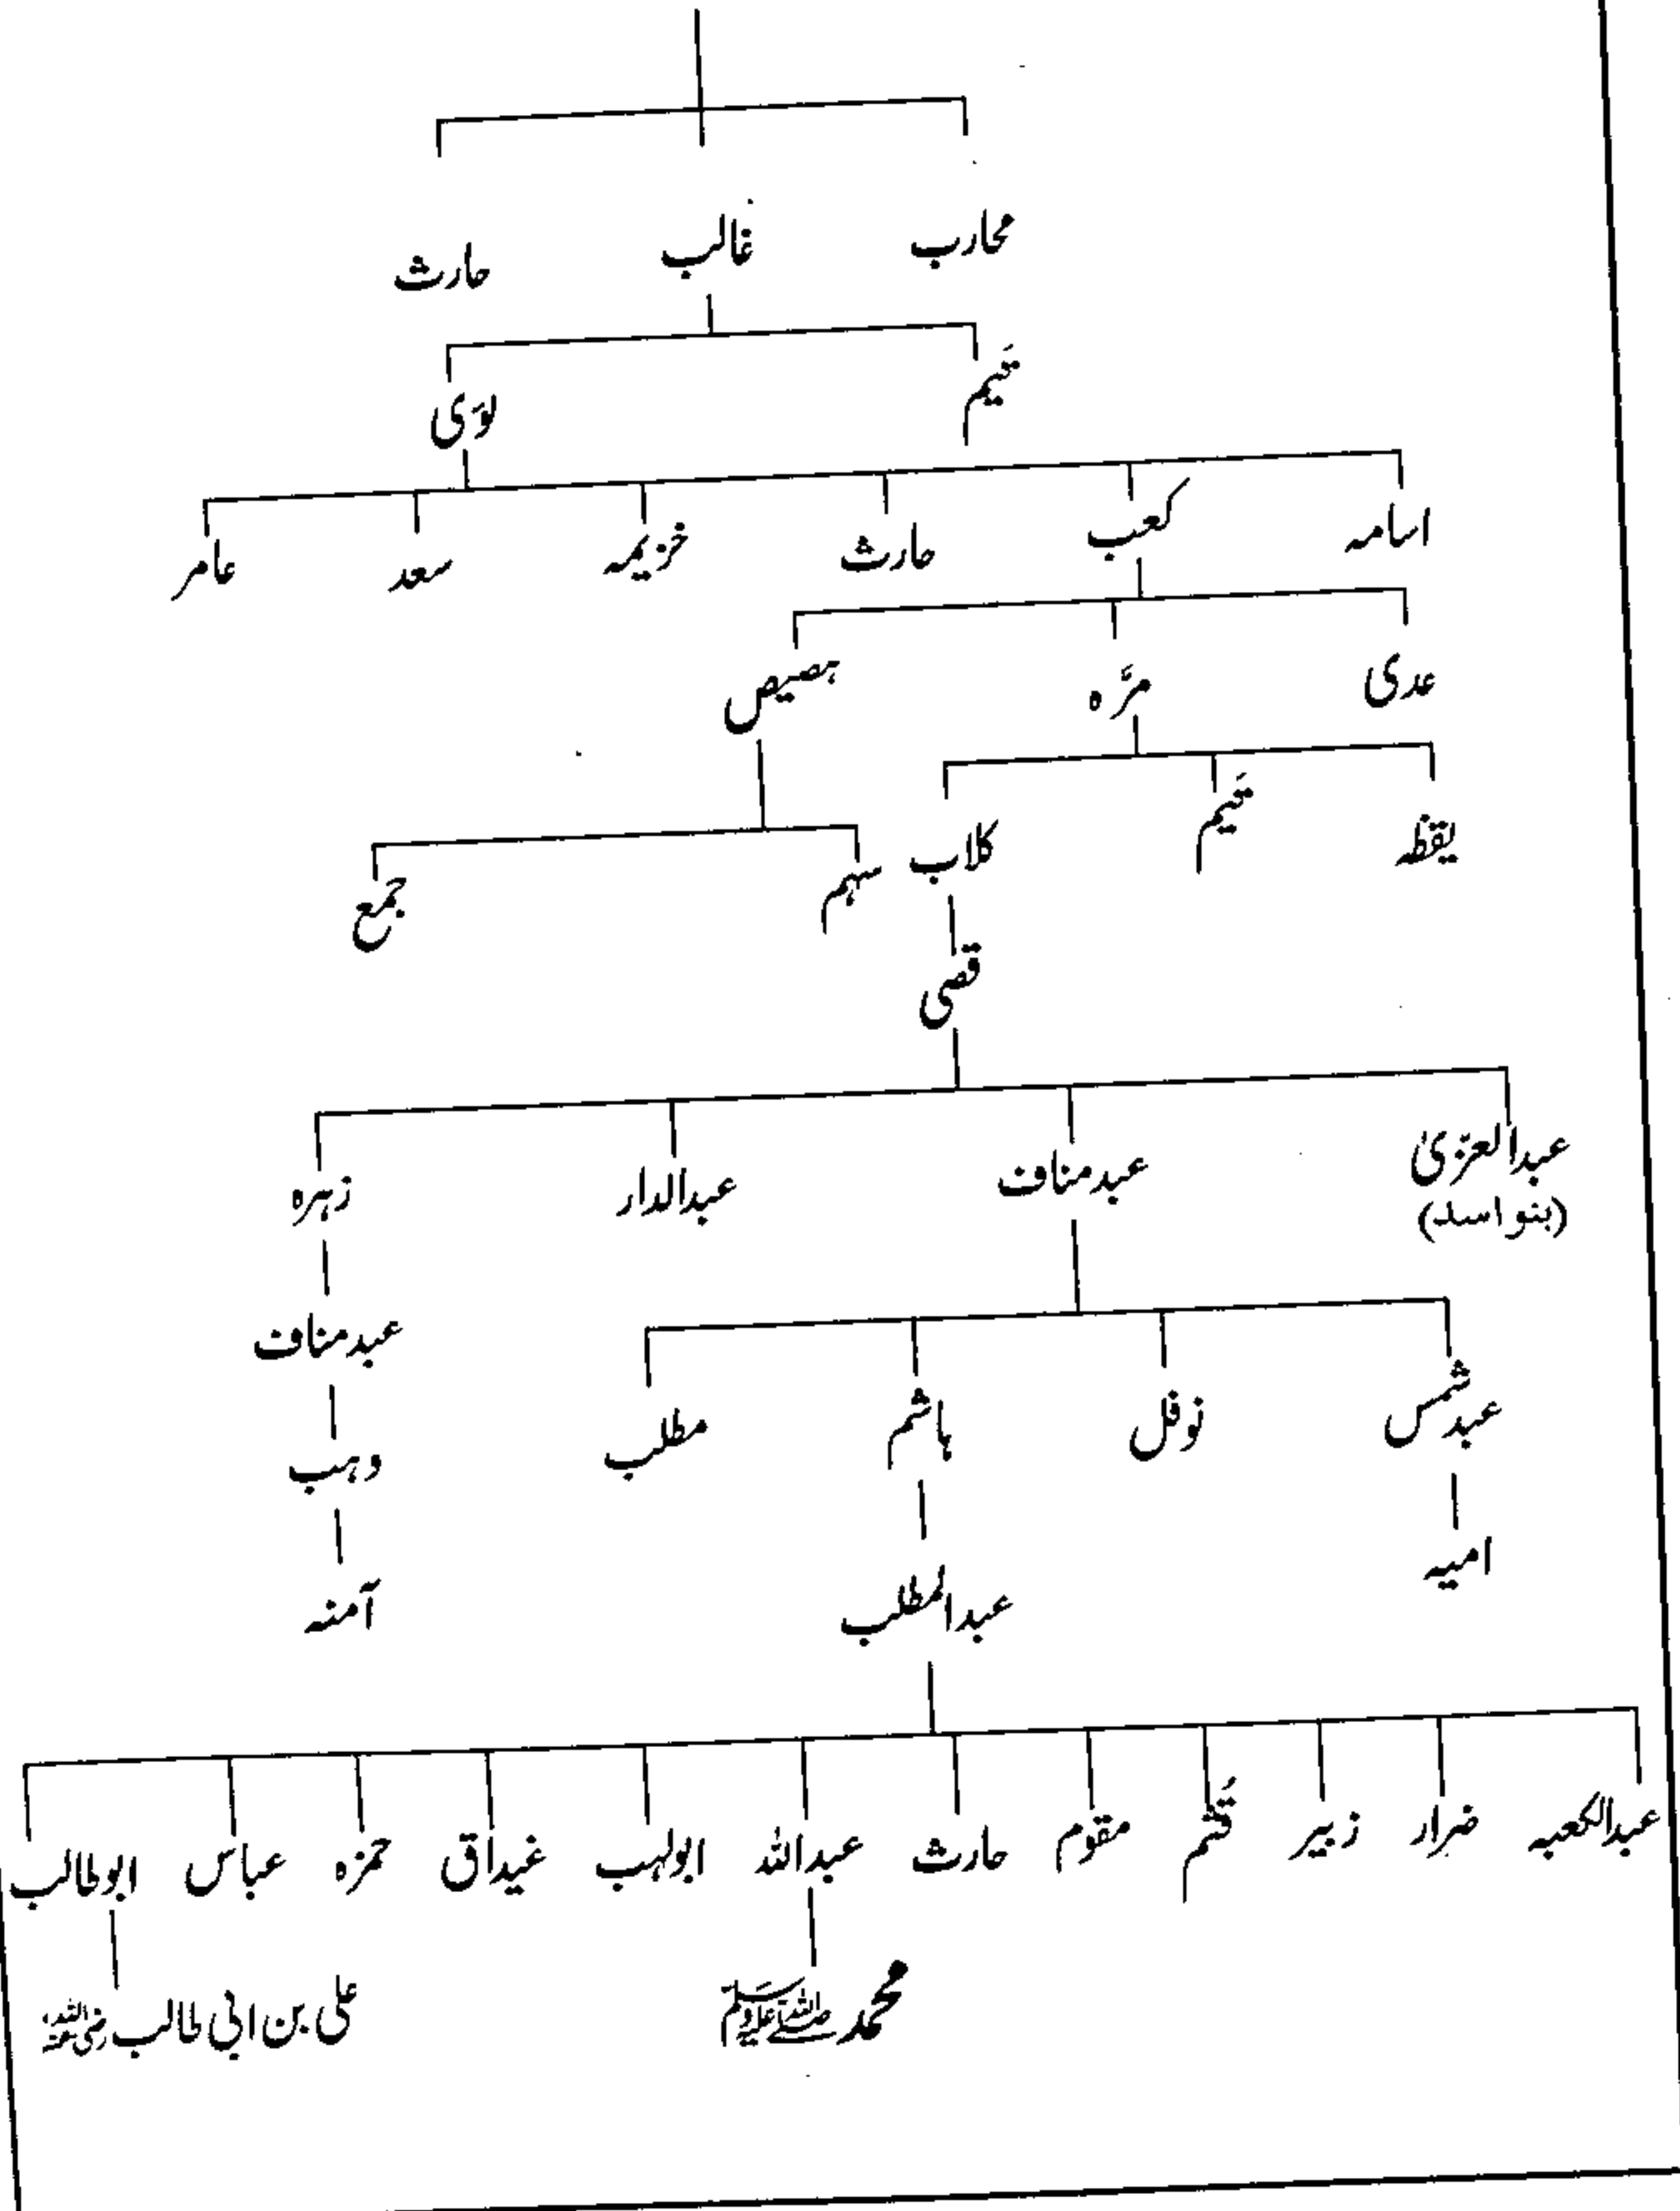 محارب غالب حارث
تَیم لوَی
اسامہ کعب حارث خزیمہ سعد عامر
عدی مرَّہ ہصیص
یقظہ تَیم کلاب سہم جمع
قصی
عبدالعزّیٰ عبدمناف عبدالدار زہرہ
(بنو اسد)
عبدمناف
عبدشمس نوفل ہاشم مطلب وہب
امیہ عبدالمطلب آمنہ
عبدالکعبہ ضرار زبیر قُثم مقوم حارث عبداللہ ابولہب غیداق حمزہ عباس ابوطالب
محمد صلی اللہ علیہ وسلم علی بن ابی طالب رضی اللہ عنہ